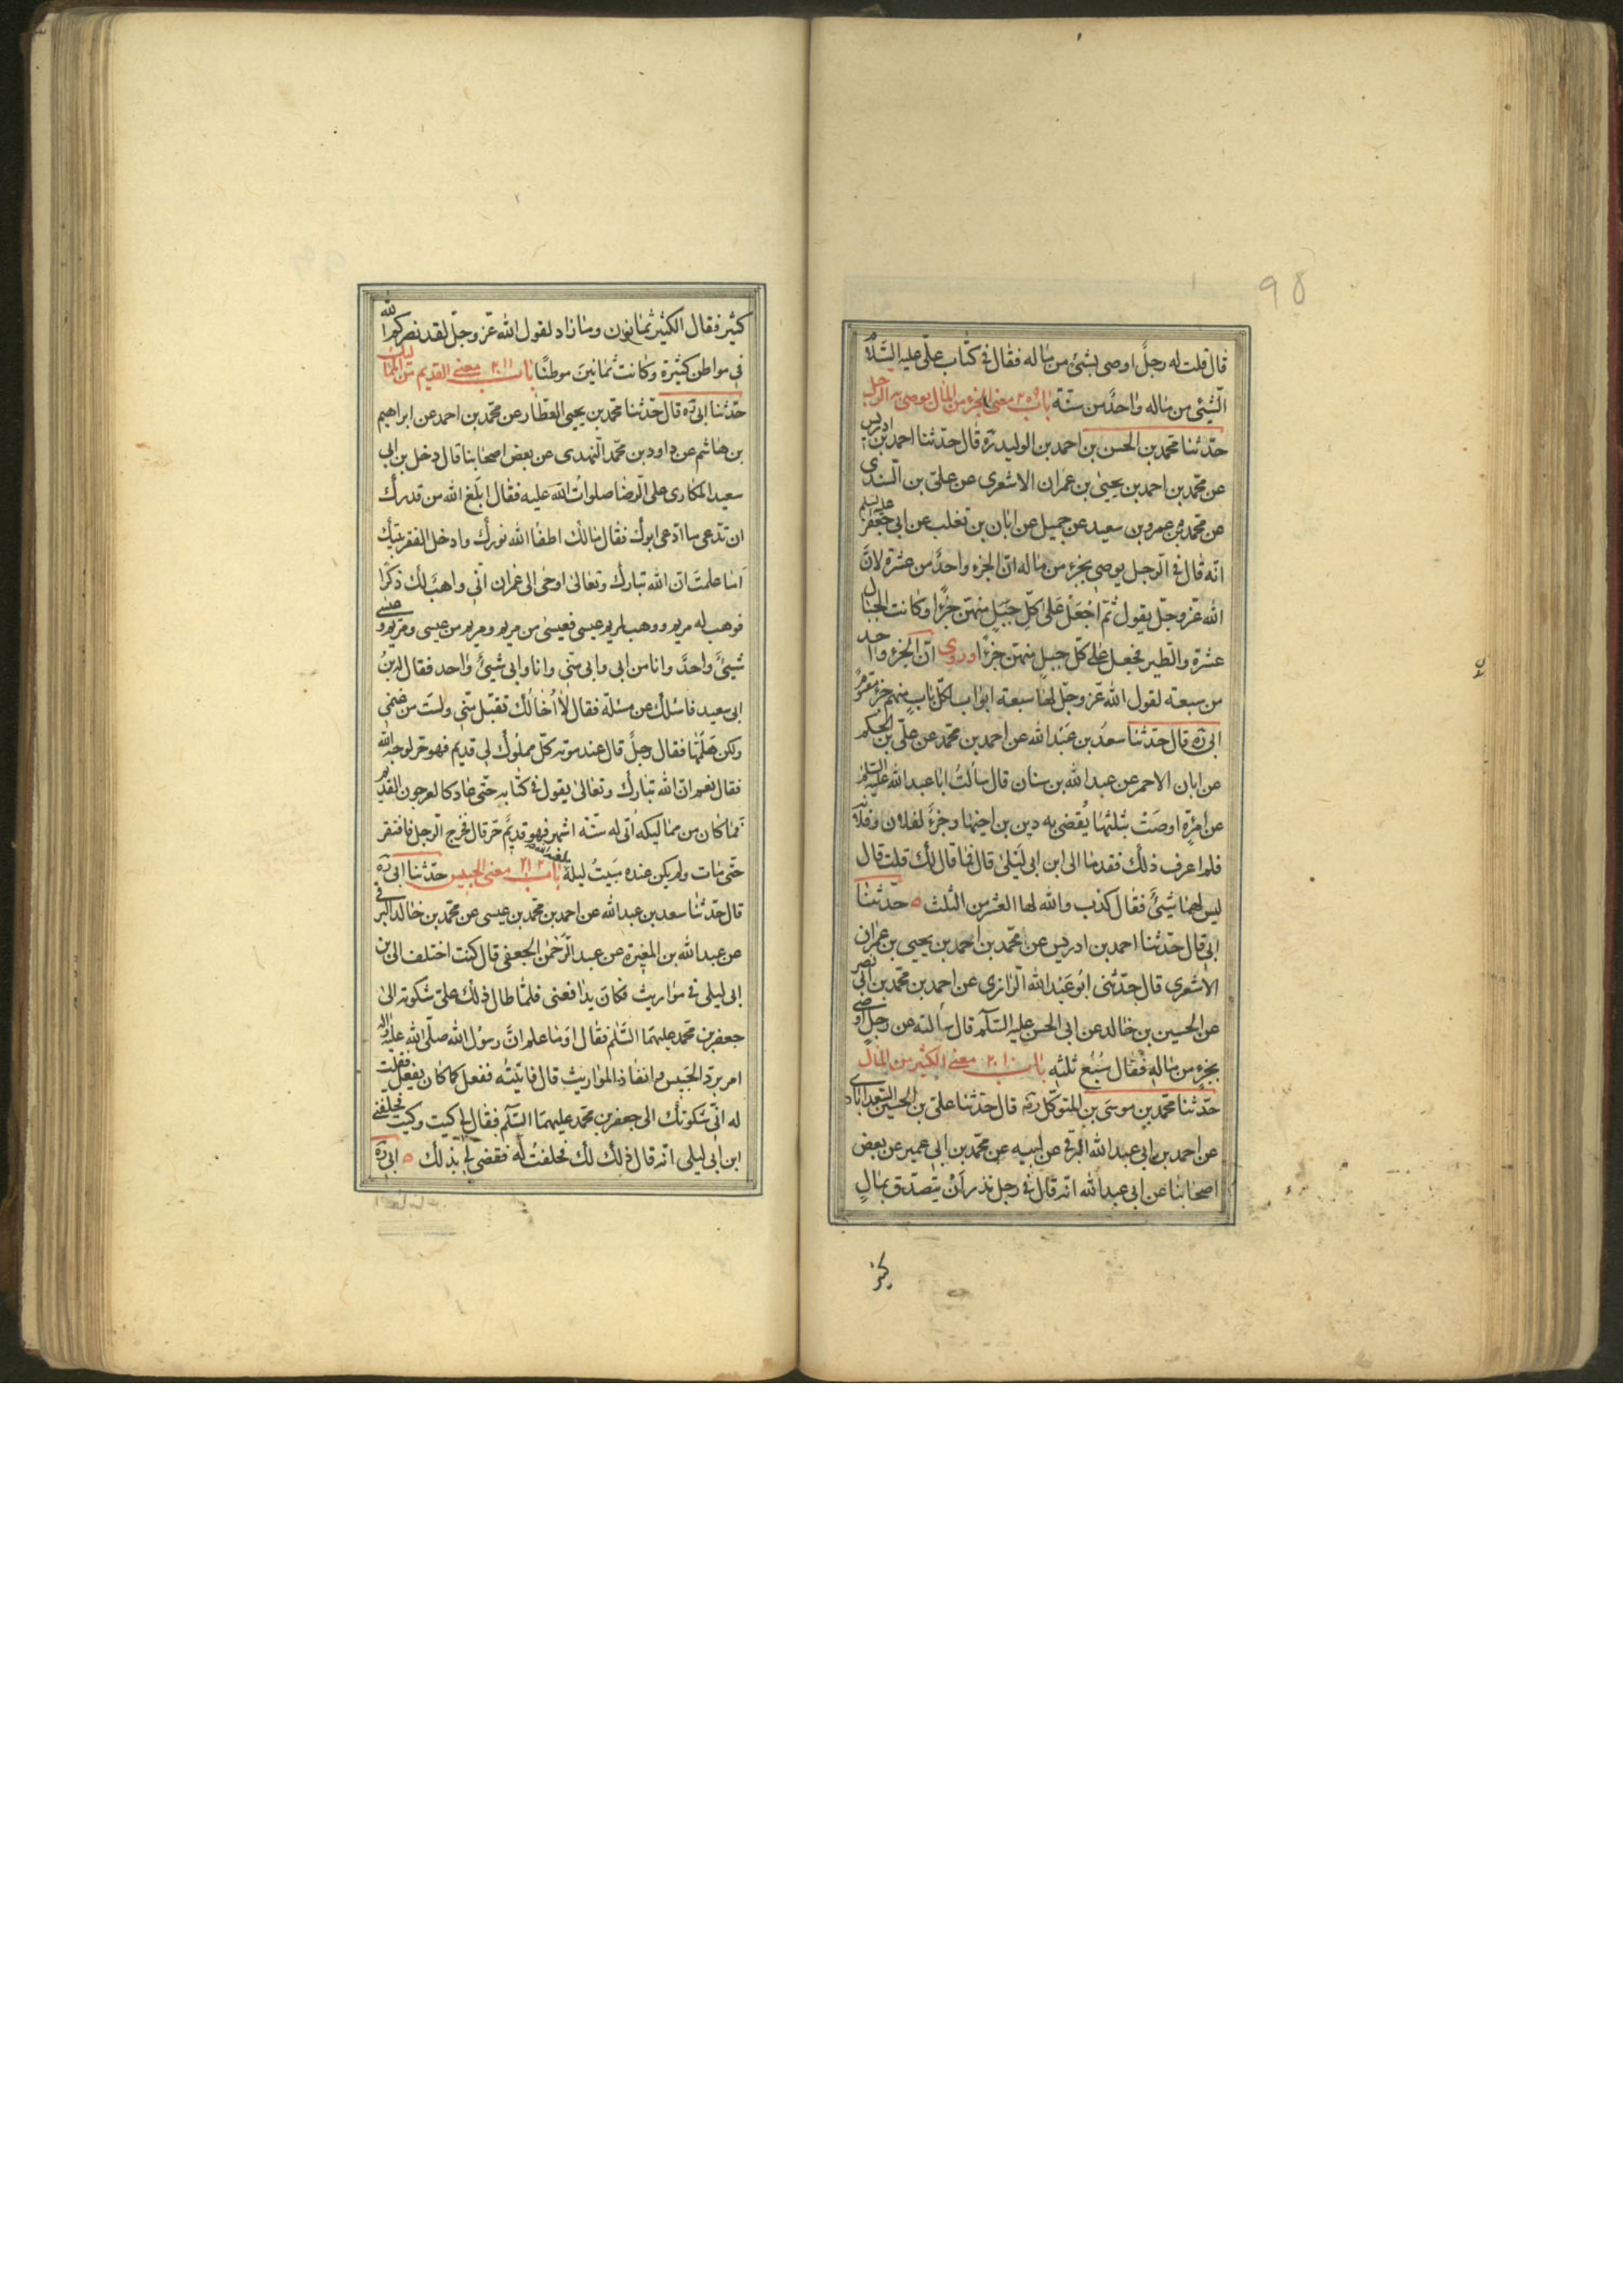 ٩٥
قال قلت له رجلٌ اوصى بشئ من ماله فقال فى كتاب على عليه السّلام
الشّئ من ماله واحدٌ من ستّة باب ٢٠٩ معنى الجزء من المال يوصى به الرجل
حدّثنا محمّد بن الحسن بن احمد بن الوليد ره قال حدّثنا احمد بن ادريس
عن محمّد بن احمد بن يحيى بن عمران الاشعرى عن علىّ بن السّندى
عن محمّد بن عمرو بن سعيد عن جميل عن ابان بن تغلب عن ابى جعفر عليه السلم
انّه قال فى الرّجل يوصى بجزء من ماله انّ الجزء واحدٌ من عشرة لانّ
الله عزّ وجلّ يقول ثمّ اجْعَلْ عَلىٰ كلّ جَبَلٍ منهنّ جزءًا وكانت الجبال
عشرة والطّير فجعل على كلّ جبل منهنّ جزءًا وروى انّ الجزء واحد
من سبعة لقول الله عزّ وجلّ لها سبعة ابواب لكلّ باب منهم جزء مقسوم
ابى ره قال حدّثنا سعد بن عبد الله عن احمد بن محمّد عن علىّ بن الحكم
عن ابان الاحمر عن عبد الله بن سنان قال سألتُ ابا عبد الله عليه السلم
عن امرٔة اوصَتْ بثلثها يُقضى به دين بن اخيها وجزءٌ لفلان وفلانة
فلم اعرف ذلك فقدمنا الى ابن ابى لَيْلىٰ قال فما قال لك قلت قال
ليس لهما شئٌ فقال كذب والله لهما العشر من الثلث ه حدّثنا
ابى قال حدّثنا احمد بن ادريس عن محمّد بن احمد بن يحيى بن عمران
الاشعرى قال حدّثنى ابو عَبْد الله الرّازى عن احمد بن محمّد بن ابى نصر
عن الحسين بن خالد عن ابى الحسن عليه السّلام قال سألته عن رجل اوصى
بجزءٍ من ماله فقال سُبُع ثلثه باب ٢١٠ معنى الكثير من المال
حدّثنا محمّد بن موسى بن المتوكّل ره قال حدّثنا علىّ بن الحسين السّعدآبادى
عن احمد بن ابى عبد الله البرقى عن ابيه عن محمّد بن ابى عمير عن بعض
اصحابنا عن ابى عبد الله انّه قال فى رجل نذر أنْ يتصدّق بمالٍ
كثير
كثير فقال الكثير ثمانون ومازاد لقول الله عزّ وجلّ لقد نصركم الله
فى مواطن كثيرة وكانت ثمانينَ موطنًا باب ٢١١ معنى القديم من المماليك
حدّثنا ابى ره قال حدّثنا محمّد بن يحيى العطّار عن محمّد بن احمد عن ابراهيم
بن هاشم عن داود بن محمّد النّهدى عن بعض اصحابنا قال دخل بن ابى
سعيد المكارى على الرّضا صلوات الله عليه فقال ابلغ الله من قدرك
ان تدعى ما ادّعى ابوك فقال مالك اطفا الله نورك وادخل الفقر بيتك
اما علمتَ انّ الله تبارك وتعالىٰ اوحى الى عمران انّى واهبٌ لك ذكرًا
فوهب له مريم ووهب لمريم عيسى فعيسىٰ من مريم ومريم من عيسى ومريم وعيسى
شيئٌ واحدٌ وانا من ابى وابى منّى وانا وابى شيئٌ واحد فقال له بنُ
ابى سعيد فاسئلك عن مسئلة فقال لا اُخالُك تقبل منّى ولستَ من غنمى
ولكن هلمّها فقال رجلٌ قال عند موته كلّ مملوك لى قديم فهو حرّ لوجه الله
فقال نعم انّ الله تبارك وتعالىٰ يقول فى كتابه حتّى عاد كالعرجون القديم
فما كان من مماليكه اتى له ستّة اشهر فهو قديم حرّ قال فخرج الرّجل فافتقر
حتّى مات ولم يكن عنده مبيتُ ليلة باب ٢١٢ معنى الحبيس حدّثنا ابى ره
قال حدّثنا سعد بن عبد الله عن احمد بن محمّد بن عيسى عن محمّد بن خالد البرقى
عن عبد الله بن المغيرة عن عبد الرّحمٰن الجعفى قال كنت اختلف الى بن
ابى ليلى فى مواريث فكان يدافعنى فلمّا طال ذلك علىّ شكوته الى
جعفر بن محمّد عليهما السّلم فقال اوما علم انّ رسول الله صلّى الله عليه واله
امر بردّ الحَبيس وانفاذ المواريث قال فاتيتُه ففعل كما كان يفعل فقلت
له انّى شكوتك الى جعفر بن محمّد عليهما السّلم فقال لى كيت وكيت فحلفنى
ابن ابى ليلى انّه قال ذلك لك فحلفتُ له فقضى لى بذلك ه ابى ره